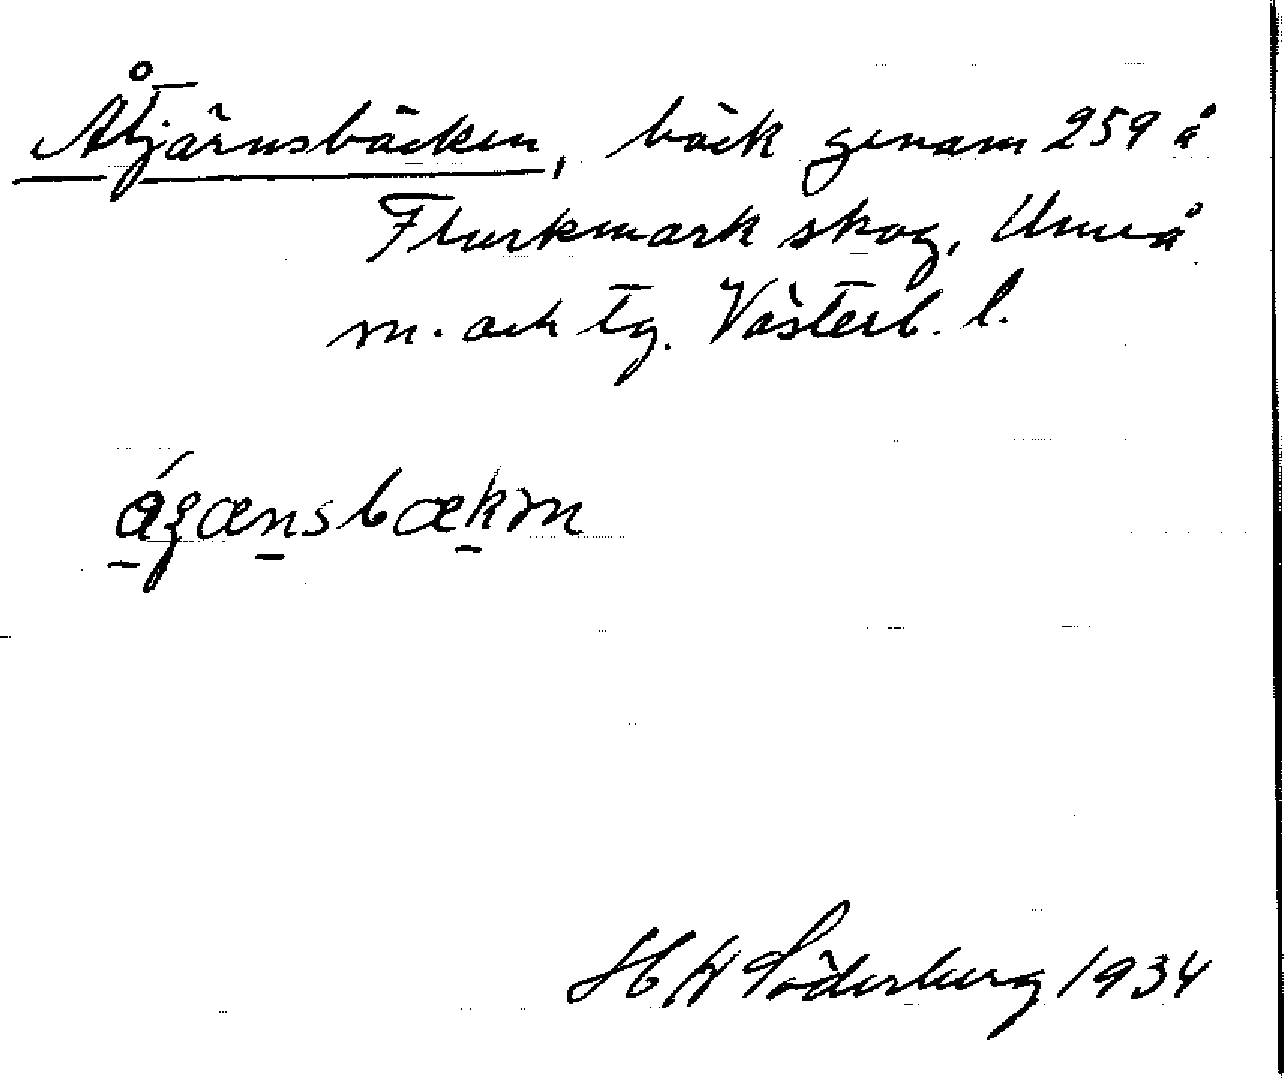 Åtjärnsbäcken, bäck genom 259 å
Flurkmark skog, Umeå
m. och tg. Västerb. l.
H W Söderberg 1934